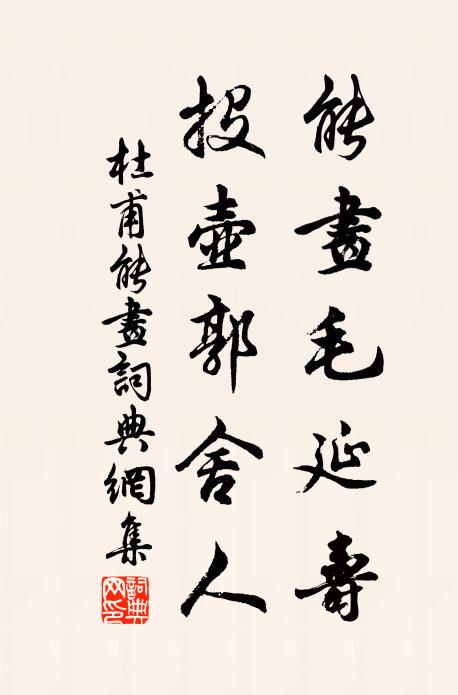 能畫毛延壽
投壺郭舍人
杜甫能畫詞典網集
詞典网印